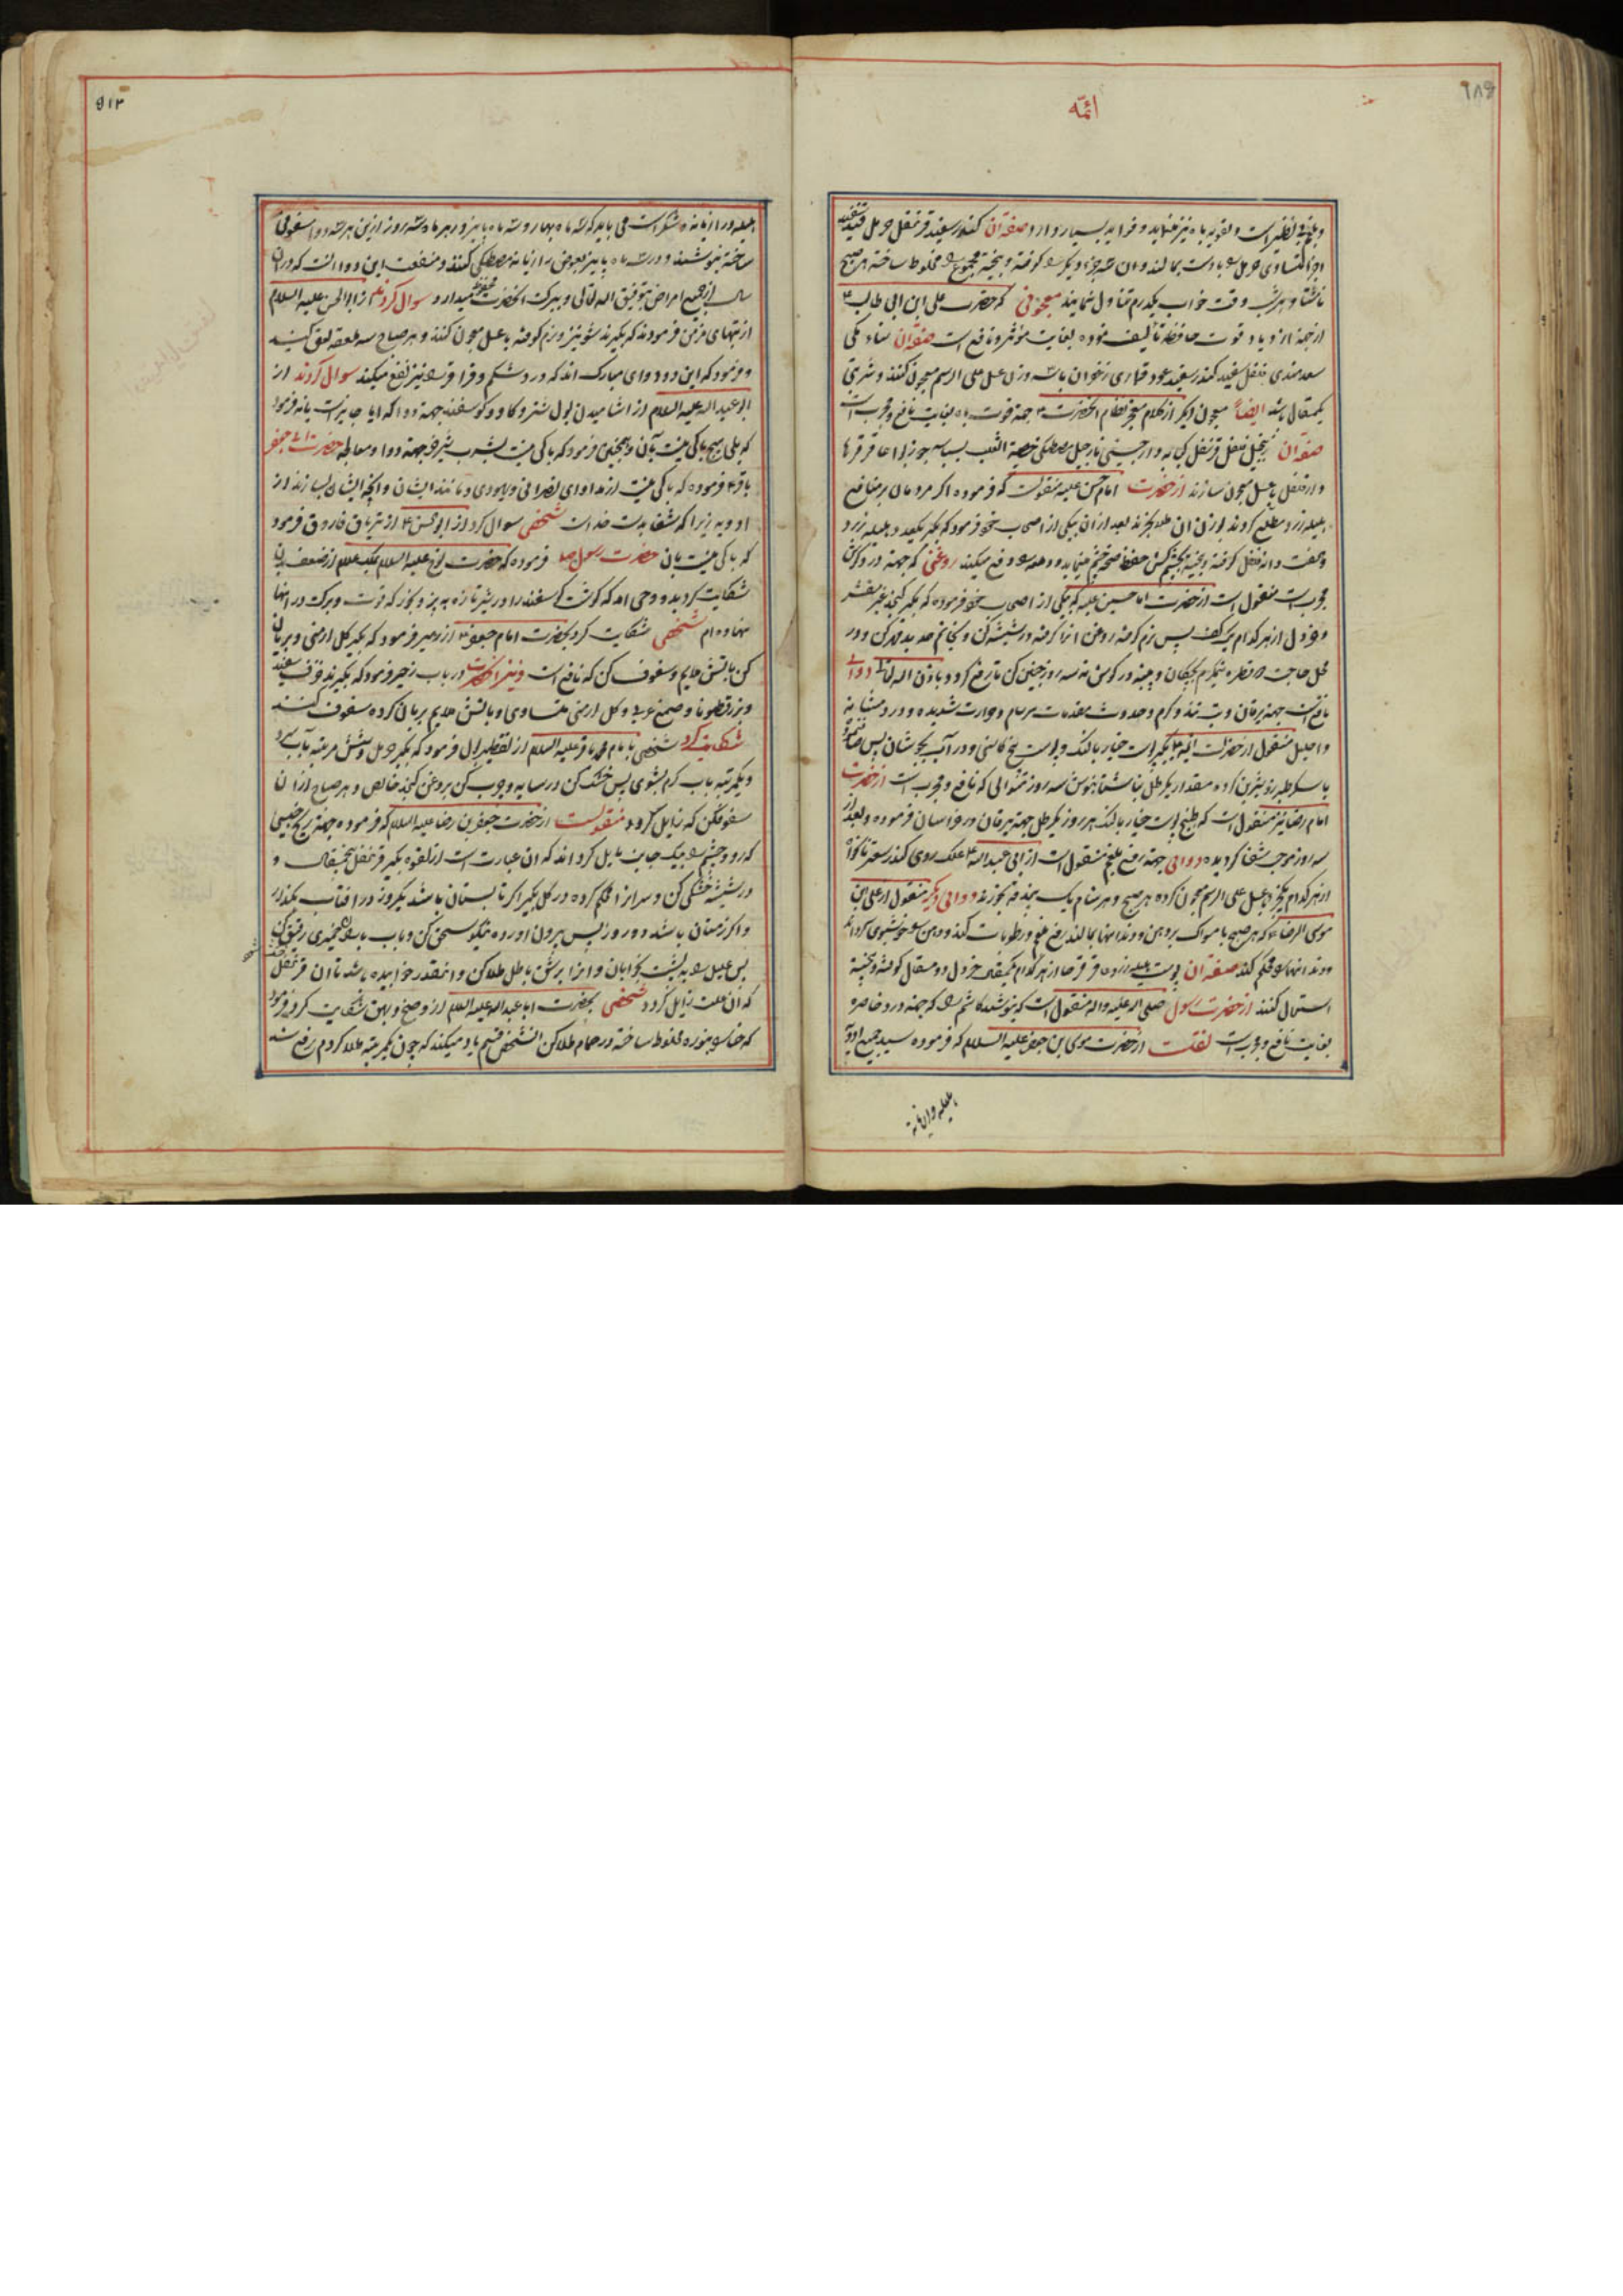 ائمّه
و بلغم بی نظیر است و تقویه باه نیز مینماید و فواید بسیار دارد صفة آن کندر سفید قرنفل حرمل
اجزا متساوی حرمل را با دست بمالند و ان سه جزء دیگر را کوفته و بیخته مجموع را مخلوط ساخته هر صبح
ناشتا و هر شب وقت خواب یکدرم تناول نمایند معجونی که حضرت علی ابن ابی طالب ع
از جهة ازدیاد قوت حافظه تالیف نموده بغایت موثر و نافع است صفة آن سناء مکی
سعد هندی فلفل سفید کندر سفید عود قماری زعفران با سه وزن عسل علی الرسم معجون کنند و شربتی
یکمثقال باشد ایضاً معجون دیگر از کلام معجز نظام انحضرت ع جهة قوت باه بغایت نافع و مجرب است
صفة آن زنجبیل فلفل قرنفل کبابه دارچینی نارجیل مصطکی خصیة الثعلب بسباسه جوزبوا عاقرقرحا
و دارفلفل با عسل معجون سازند از حضرت امام حسن علیه منقولست که فرموده اکر مردمان بر منافع
هلیله زرد مطلع کردند بوزن ان طلا بخرند بعد ازان بیکی از اصحاب خود فرمود که بکیر یکعدد هلیله زرد
و هفت دانه فلفل کوفته و بیخته بچشم کش حفظ صحه چشم مینماید و دمعه را دفع میکند روغنی که جهة درد کوش
مجرب است منقول است از حضرت امام حسین علیه که بیکی از اصحاب خود فرموده که بکیر کنجد غیر مقشر
و خردل از هر کدام یک کف پس نرم کوفته روغن انرا کرفته در شیشه کن و بخاتم حدید مهر کن و در
محل حاجت دو قطره نیمکرم بچکان و پنبه در کوش نه سه روز چنین کن تا رفع کردد باذن اله تعالی دوائی
نافع است جهة یرقان و تب تند و کرم و حدوث مقدمات سرسام و حرارت شدیده و درد مثانه
و احلیل منقول از حضرت ائمه ع بکیر پوست خیار بالنک و پوست بیخ کاسنی و در آب بجوشان پس صاف نموده
با سکر طبرزد شیرین کرده مقدار یکرطل بناشتا بنوش سه روز متوالی که نافع و مجرب است از حضرت
امام رضا نیز منقول است که طبخ پوست خیار بالنک هر روز یکرطل جهة یرقان در خراسان فرموده و بعد از
سه روز موجب شفا کردیده دوائی جهة رفع بلغم منقول است از ابی عبداله ع علک رومی کندر سعتر نانخواه
از هر کدام بکیر و با عسل علی الرسم معجون کرده هر صبح و هر شام یک بندقه بخورند دوائی دیکر منقول از علی ابن
موسی الرضا ع که هر صبح با مسواک بر دهن و دندانها بمالند رفع بلغم و رطوبات کند و دهن را خوشبوی کرداند
و دندانها را محکم کند صفة آن پوست هلیله زرد عاقرقرحا از هر کدام یکمثقال خردل دو مثقال کوفته و بیخته
استعمال کنند از حضرت رسول صلی اله علیه و اله منقول است که بنوشید کاشم را که جهة درد خاصره
بغایت نافع و مجرب است نقلست از حضرت موسی بن جعفر علیه السلام که فرموده سید جمیع ادویه
هلیله و رازیانه
۵۱۲
هلیله و رازیانه و شکر است می باید که سه ماه بهار و سه ماه پاییز و در هر ماه سه روز ازین هر سه دوا سفوفی
ساخته بنوشند و در سه ماه پاییز بعوض رازیانه مصطکی کنند و منفعت این دوا انست که در ان
سال از جمیع امراض بتوفیق اله تعالی و ببرکت انحضرت محفوظ میدارد سوال کردند از ابو الحسن علیه السلام
از تبهای مزمن فرمودند که بکیرند شونیز و نرم کوفته با عسل معجون کنند و هر صباح سه ملعقه لعق کنند
و فرمود که این دو دوای مبارک اند که درد شکم و قراقر را نیز نفع میکند سوال کردند از
ابو عبد اله علیه السلام از اشامیدن بول شتر و کاو و کوسفند جهة دوا که ایا جایز است یا نه فرمود
که بلی هیچ باکی نیست بآن و همچنین فرمود که باکی نیست بشرب شیر خر جهة دوا و معالجه حضرت ابی جعفر
باقر ع فرموده که باکی نیست از مداوای نصرانی و یهودی و مانند ایشان و انچه ایشان بسازند از
ادویه زیرا که شفا بدست خداست شخصی سوال کرد از ابو الحسن ع از تریاق فاروق فرمود
که باکی نیست بان حضرت رسول ص فرموده که حضرت نوح علیه السلام بملک علام از ضعف بدن
شکایت کردید و وحی امد که کوشت کوسفند را در شیر تازه به پز و بخور که قوت و برکت در انها
نهاده ام شخصی شکایت کرد بحضرت امام جعفر ع از زحیر فرمود که بکیر کل ارمنی و بریان
کن باتش ملایم و سفوف کن که نافع است و نیز انحضرت در باب زحیر فرمود که بکیرند خزف سفید
و بزر قطونا و صمغ عربی و کل ارمنی متساوی و باتش ملایم بریان کرده سفوف کنند
شکایت کرد شخصی با امام محمد باقر علیه السلام از تقطیر بول فرمود که بکیر حرمل و شش مرتبه بآب سرد
و یکمرتبه باب کرم بشوی پس خشک کن در سایه و چرب کن بروغن کنجد خالص و هر صباح از ان
سفوفکن که زایل کردد منقولست از حضرت جعفر بن رضا علیه السلام که فرموده جهة ریح خبیثی
که رو و چشم را بیک جانب مایل کرداند که ان عبارت است از لقوه بکیر قرنفل پنجمثقال و
در شیشه خشکی کن و سر انرا محکم کرده در کل بکیر اکر تابستان باشد یکروز در افتاب بکذار
و اکر زمستان باشد دو روز پس بیرون اورده نیکو سحق کن و باب باران خمیری رقیق کن
پس علیل را به پشت بخوابان و انرا بر شق باطل طلا کن و انقدر خوابیده باشد تا ان قرنفل خشک شود
که ان علت زایل کردد شخصی بحضرت ابا عبداله علیه السلام از وضح و بهق شکایت کرد فرمود
که حنا را با نوره مخلوط ساخته در حمام طلا کن انشخص قسم یاد میکند که چون یکمرتبه طلا کردم رفع شد